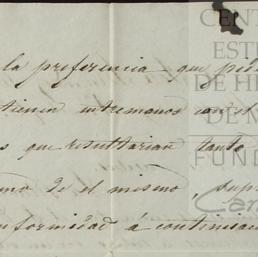 la preferencia que pide
tienen entremanos con el
s que resultarian tanto
mo de el mismo, sup
nformidad á continuac
CENT
ESTU
DE HI
DE M
FUND
Car